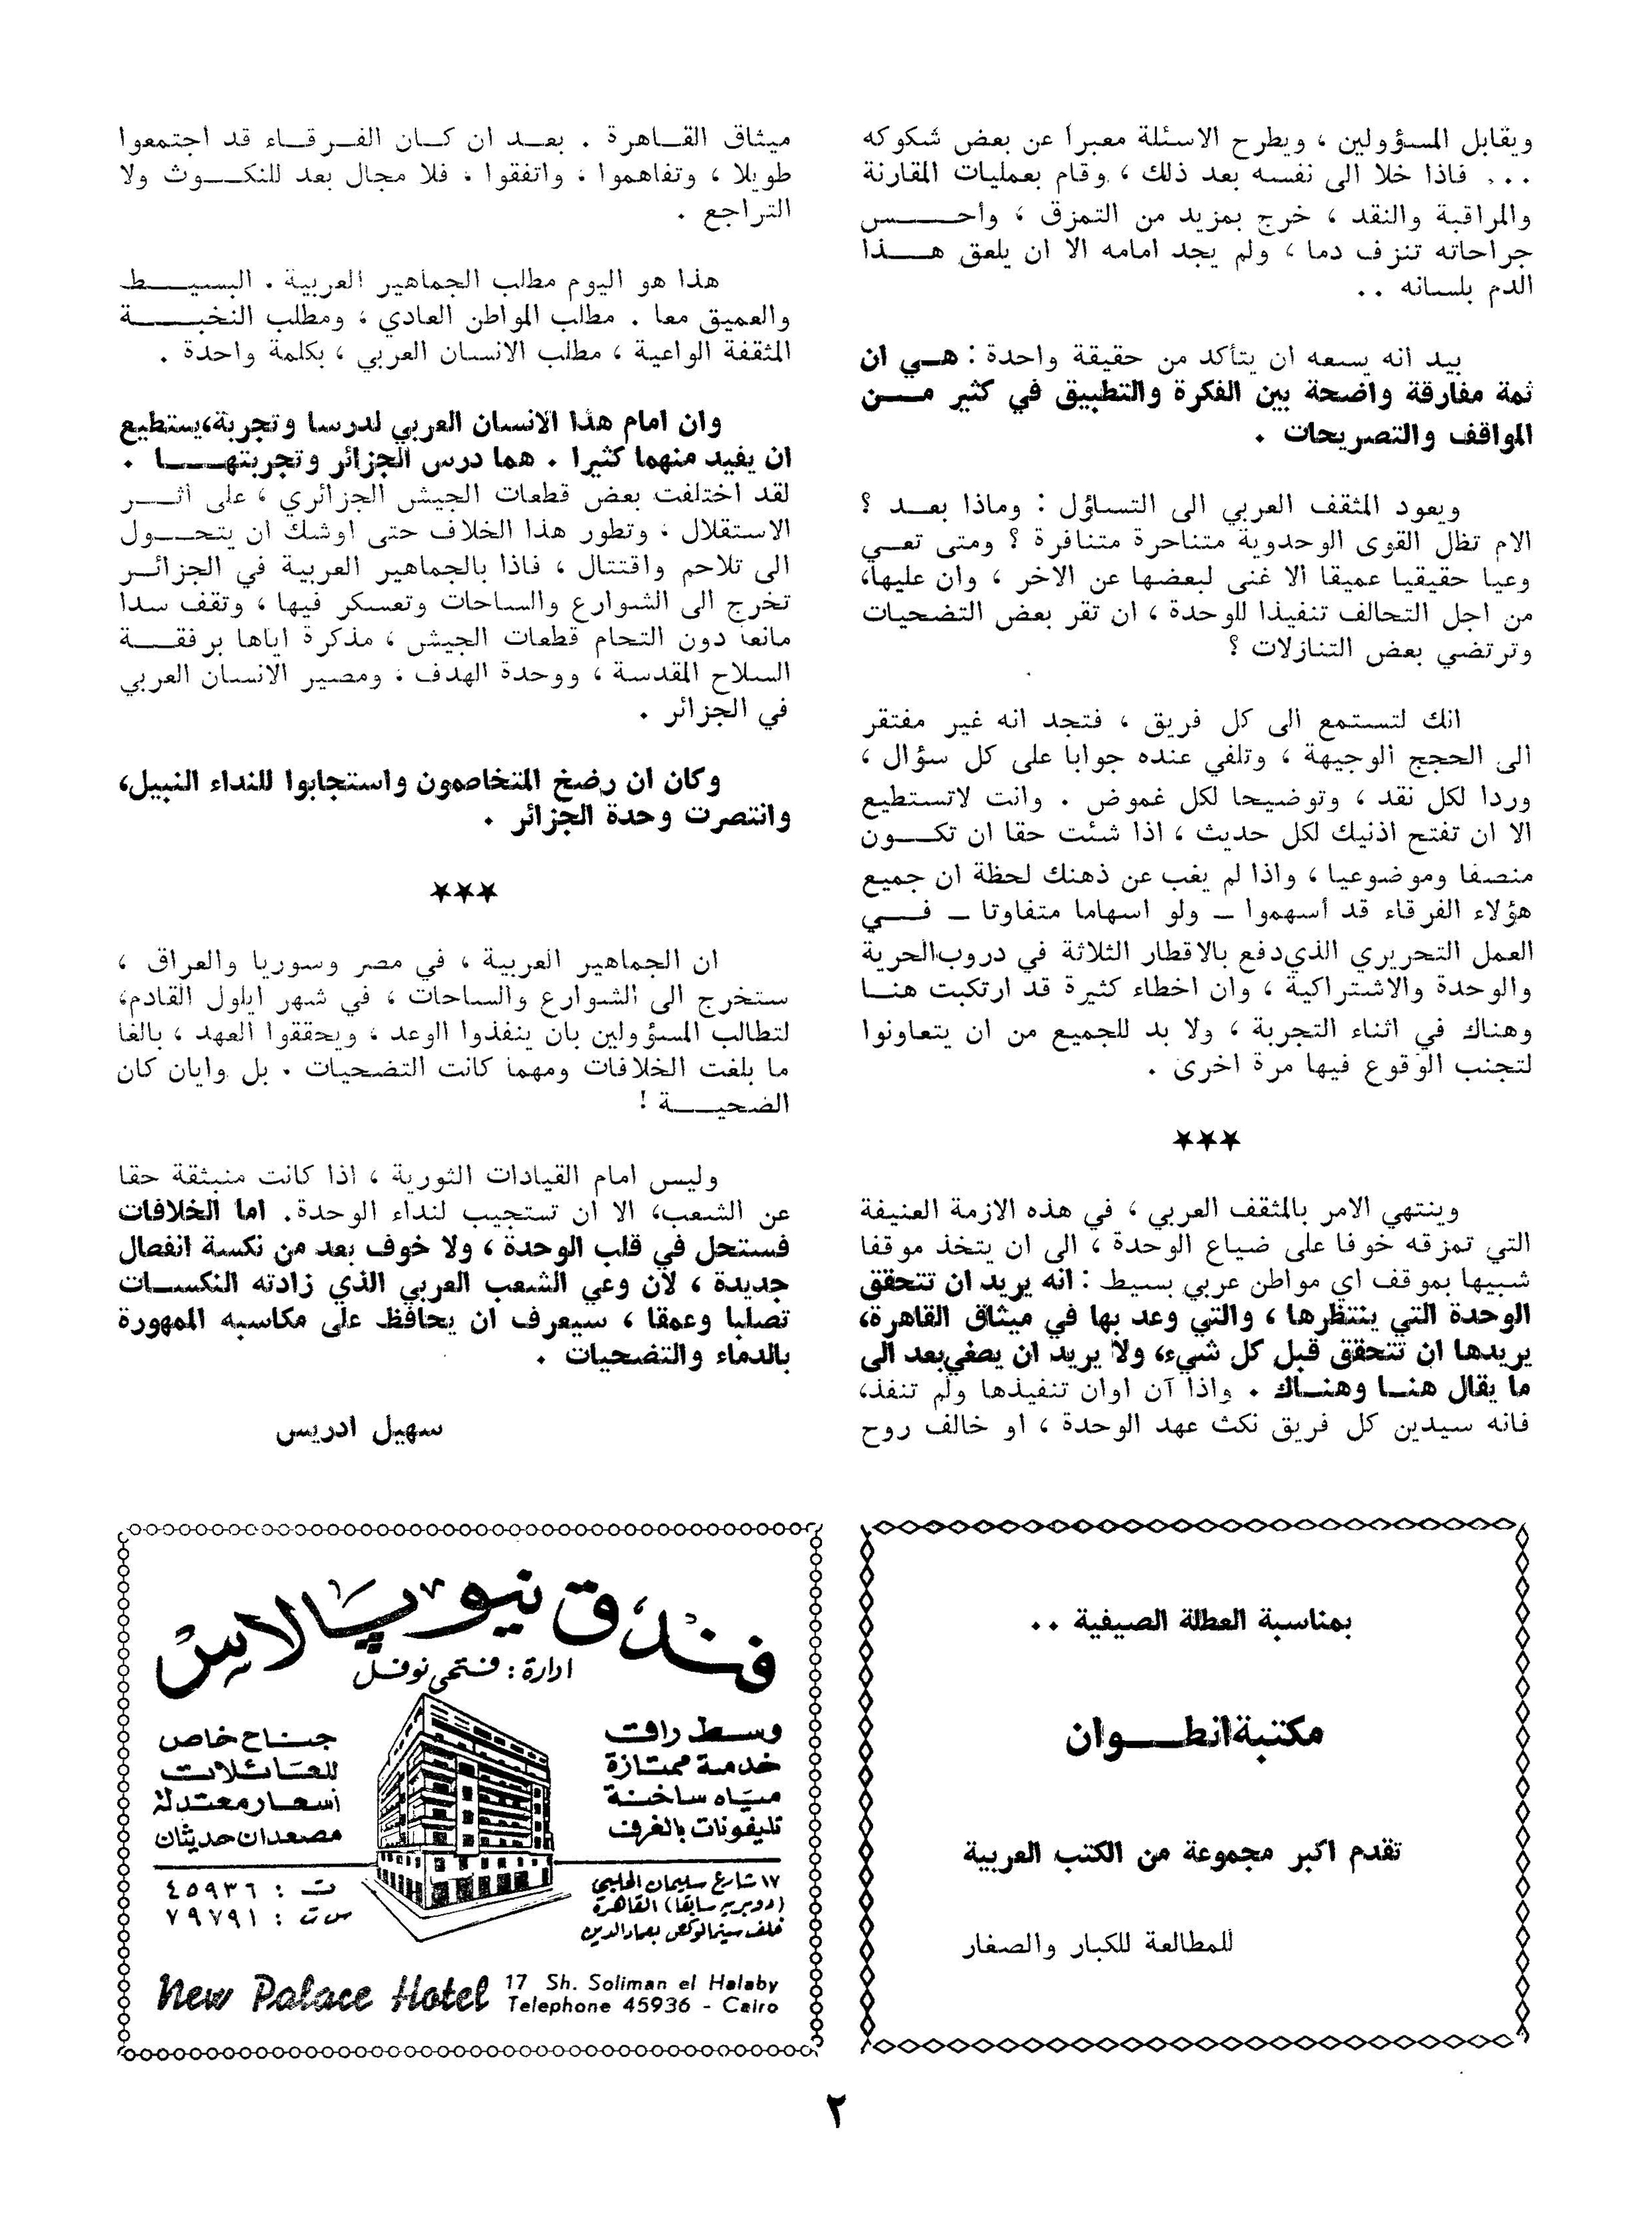 ويقابل المسؤولين ، ويطرح الاسئلة معبراً عن بعض شكوكه
... فاذا خلا الى نفسه بعد ذلك ، وقام بعمليات المقارنة
والمراقبة والنقد ، خرج بمزيد من التمزق ، واحس
جراحاته تنزف دما ، ولم يجد امامه الا ان يلعق هذا
الدم بلسانه ..
بيد انه يسعه ان يتأكد من حقيقة واحدة : هي ان
ثمة مفارقة واضحة بين الفكرة والتطبيق في كثير من
المواقف والتصريحات .
ويعود المثقف العربي الى التساؤل : وماذا بعد ؟
الام تظل القوى الوحدوية متناحرة متنافرة ؟ ومتى تعي
وعيا حقيقيا عميقا الا غنى لبعضها عن الاخر ، وان عليها،
من اجل التحالف تنفيذا للوحدة ، ان تقر بعض التضحيات
وترتضي بعض التنازلات ؟
انك لتستمع الى كل فريق ، فتجد انه غير مفتقر
الى الحجج الوجيهة ، وتلفي عنده جوابا على كل سؤال ،
وردا لكل نقد ، وتوضيحا لكل غموض . وانت لاتستطيع
الا ان تفتح اذنيك لكل حديث ، اذا شئت حقا ان تكون
منصفا وموضوعيا ، واذا لم يغب عن ذهنك لحظة ان جميع
هؤلاء الفرقاء قد أسهموا – ولو اسهاما متفاوتا – في
العمل التحريري الذي دفع بالاقطار الثلاثة في دروب الحرية
والوحدة والاشتراكية ، وان اخطاء كثيرة قد ارتكبت هنا
وهناك في اثناء التجربة ، ولا بد للجميع من ان يتعاونوا
لتجنب الوقوع فيها مرة اخرى .
★★★
وينتهي الامر بالمثقف العربي ، في هذه الازمة العنيفة
التي تمزقه خوفا على ضياع الوحدة ، الى ان يتخذ موقفا
شبيها بموقف اي مواطن عربي بسيط : انه يريد ان تتحقق
الوحدة التي ينتظرها ، والتي وعد بها في ميثاق القاهرة،
يريدها ان تتحقق قبل كل شيء، ولا يريد ان يصغي بعد الى
ما يقال هنا وهناك . واذا آن اوان تنفيذها ولم تنفذ،
فانه سيدين كل فريق نكث عهد الوحدة ، او خالف روح
ميثاق القاهرة . بعد ان كان الفرقاء قد اجتمعوا
طويلا ، وتفاهموا ، واتفقوا ، فلا مجال بعد للنكوث ولا
التراجع .
هذا هو اليوم مطلب الجماهير العربية . البسيط
والعميق معا . مطلب المواطن العادي ، ومطلب النخبة
المثقفة الواعية ، مطلب الانسان العربي ، بكلمة واحدة .
وان امام هذا الانسان العربي لدرسا وتجربة،يستطيع
ان يفيد منهما كثيرا . هما درس الجزائر وتجربتها .
لقد اختلفت بعض قطعات الجيش الجزائري ، على اثر
الاستقلال ، وتطور هذا الخلاف حتى اوشك ان يتحول
الى تلاحم واقتتال ، فاذا بالجماهير العربية في الجزائر
تخرج الى الشوارع والساحات وتعسكر فيها ، وتقف سدا
مانعا دون التحام قطعات الجيش ، مذكرة اياها برفقة
السلاح المقدسة ، ووحدة الهدف ، ومصير الانسان العربي
في الجزائر .
وكان ان رضخ المتخاصمون واستجابوا للنداء النبيل،
وانتصرت وحدة الجزائر .
★★★
ان الجماهير العربية ، في مصر وسوريا والعراق ،
ستخرج الى الشوارع والساحات ، في شهر ايلول القادم،
لتطالب المسؤولين بان ينفذوا الوعد ، ويحققوا العهد ، بالغا
ما بلغت الخلافات ومهما كانت التضحيات . بل وايان كان
الضحية !
وليس امام القيادات الثورية ، اذا كانت منبثقة حقا
عن الشعب، الا ان تستجيب لنداء الوحدة. اما الخلافات
فستحل في قلب الوحدة ، ولا خوف بعد من نكسة انفصال
جديدة ، لان وعي الشعب العربي الذي زادته النكسات
تصلبا وعمقا ، سيعرف ان يحافظ على مكاسبه الممهورة
بالدماء والتضحيات .
سهيل ادريس
بمناسبة العطلة الصيفية ..
مكتبة انطوان
تقدم اكبر مجموعة من الكتب العربية
للمطالعة للكبار والصغار
فندق نيو پالاس
ادارة : فتحي نوفل
وسط راقت
خدمة ممتازة
مياه ساخنة
تليفونات بالغرف
جناح خاص
للعائلات
أسعار معتدلة
مصعدان حديثان
١٧ شارع سليمان الحلبي
(دوبريه سابقا) القاهرة
خلف سينما لوكس بعماد الدين
ت : ٤٥٩٣٦
س ت : ٧٩٧٩١
New Palace Hotel
17 Sh. Soliman el Halaby
Telephone 45936 - Cairo
٢